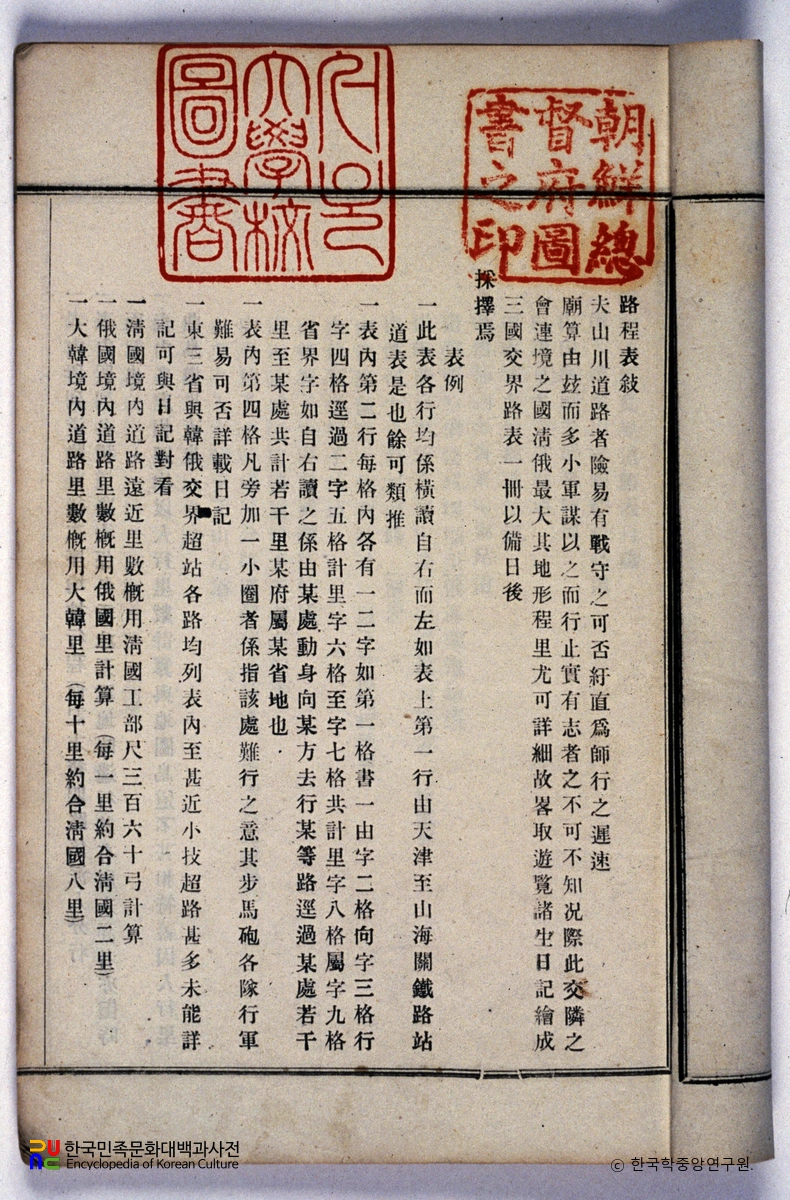 朝鮮總
督府圖
書之印
大學校
圖書
路程表敍
夫山川道路者險易有戰守之可否紆直爲師行之遲速
廟算由玆而多小軍謀以之而行止實有志者之不可不知况際此交隣之
會連境之國淸俄最大其地形程里尤可詳細故畧取遊覽諸生日記繪成
三國交界路表一冊以備日後
採擇焉
表例
一此表各行均係橫讀自右而左如表上第一行由天津至山海關鐵路站
道表是也餘可類推
一表內第二行每格內各有一二字如第一格書一由字二格向字三格行
字四格逕過二字五格計里字六格至字七格共計里字八格屬字九格
省界字如自右讀之係由某處動身向某方去行某等路逕過某處若干
里至某處共計若干里某府屬某省地也
一表內第四格凡旁加一小圈者係指該處難行之意其步馬砲各隊行軍
難易可否詳載日記
一東三省與韓俄交界超站各路均列表內至甚近小技超路甚多未能詳
記可與日記對看
一淸國境內道路遠近里數槪用淸國工部尺三百六十弓計算
一俄國境內道路里數槪用俄國里計算(每一里約合淸國二里)
一大韓境內道路里數槪用大韓里(每十里約合淸國八里)
한국민족문화대백과사전
Encyclopedia of Korean Culture
© 한국학중앙연구원.